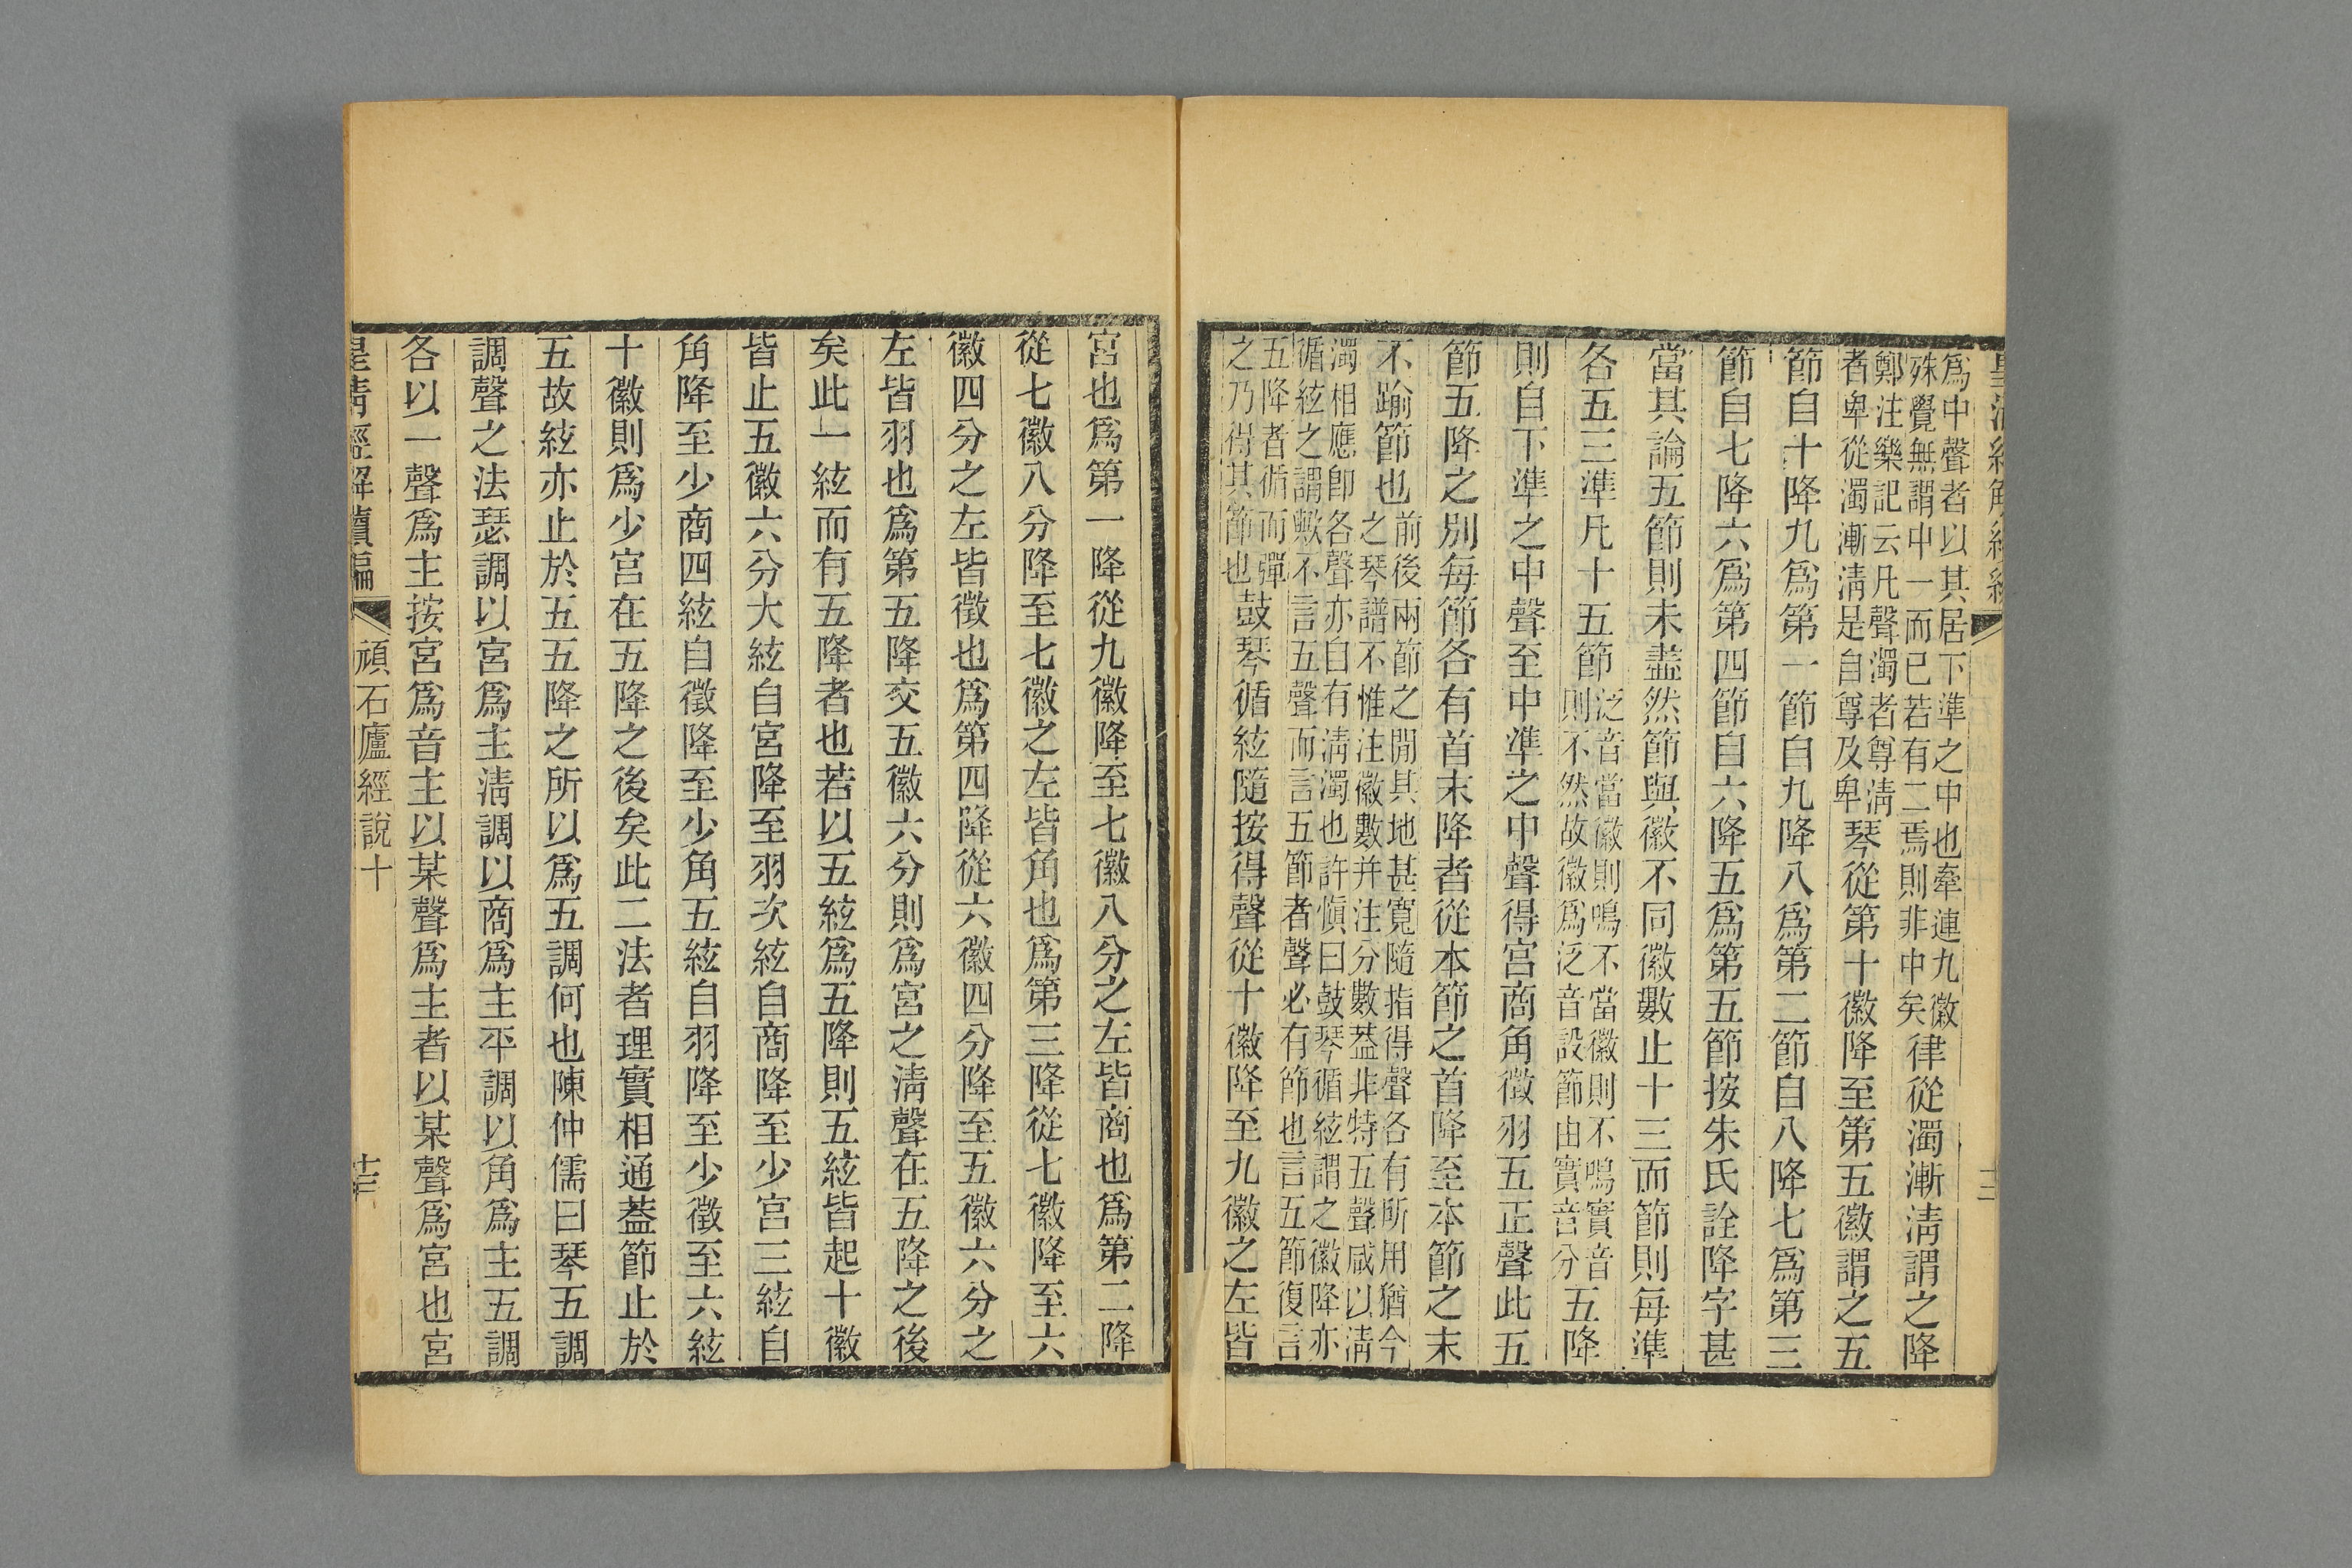 皇清經解續編
十二
爲中聲者以其居下準之中也牽連九徽
殊覺無謂中一而已若有二焉則非中矣
律從濁漸淸謂之降
鄭注樂記云凡聲濁者尊淸
者卑從濁漸淸是自尊及卑
琴從第十徽降至第五徽謂之五
節自十降九爲第一節自九降八爲第二節自八降七爲第三
節自七降六爲第四節自六降五爲第五節按朱氏詮降字甚
當其論五節則未盡然節與徽不同徽數止十三而節則每準
各五三準凡十五節
泛音當徽則鳴不當徽則不鳴實音
則不然故徽爲泛音設節由實音分
五降
則自下準之中聲至中準之中聲得宮商角徵羽五正聲此五
節五降之別每節各有首末降者從本節之首降至本節之末
不踰節也
前後兩節之閒其地甚寬隨指得聲各有所用猶今
之琴譜不惟注徽數并注分數葢非特五聲咸以淸
濁相應卽各聲亦自有淸濁也許愼曰鼓琴循絃謂之徽降亦
循絃之謂歟不言五聲而言五節者聲必有節也言五節復言
五降者循而彈
之乃得其節也
鼓琴循絃隨按得聲從十徽降至九徽之左皆
宮也爲第一降從九徽降至七徽八分之左皆商也爲第二降
從七徽八分降至七徽之左皆角也爲第三降從七徽降至六
徽四分之左皆徵也爲第四降從六徽四分降至五徽六分之
左皆羽也爲第五降交五徽六分則爲宮之淸聲在五降之後
矣此一絃而有五降者也若以五絃爲五降則五絃皆起十徽
皆止五徽六分大絃自宮降至羽次絃自商降至少宮三絃自
角降至少商四絃自徵降至少角五絃自羽降至少徵至六絃
十徽則爲少宮在五降之後矣此二法者理實相通葢節止於
五故絃亦止於五五降之所以爲五調何也陳仲儒曰琴五調
調聲之法瑟調以宮爲主淸調以商爲主平調以角爲主五調
各以一聲爲主按宮爲音主以某聲爲主者以某聲爲宮也宮
皇清經解續編
頑石廬經說十
十三